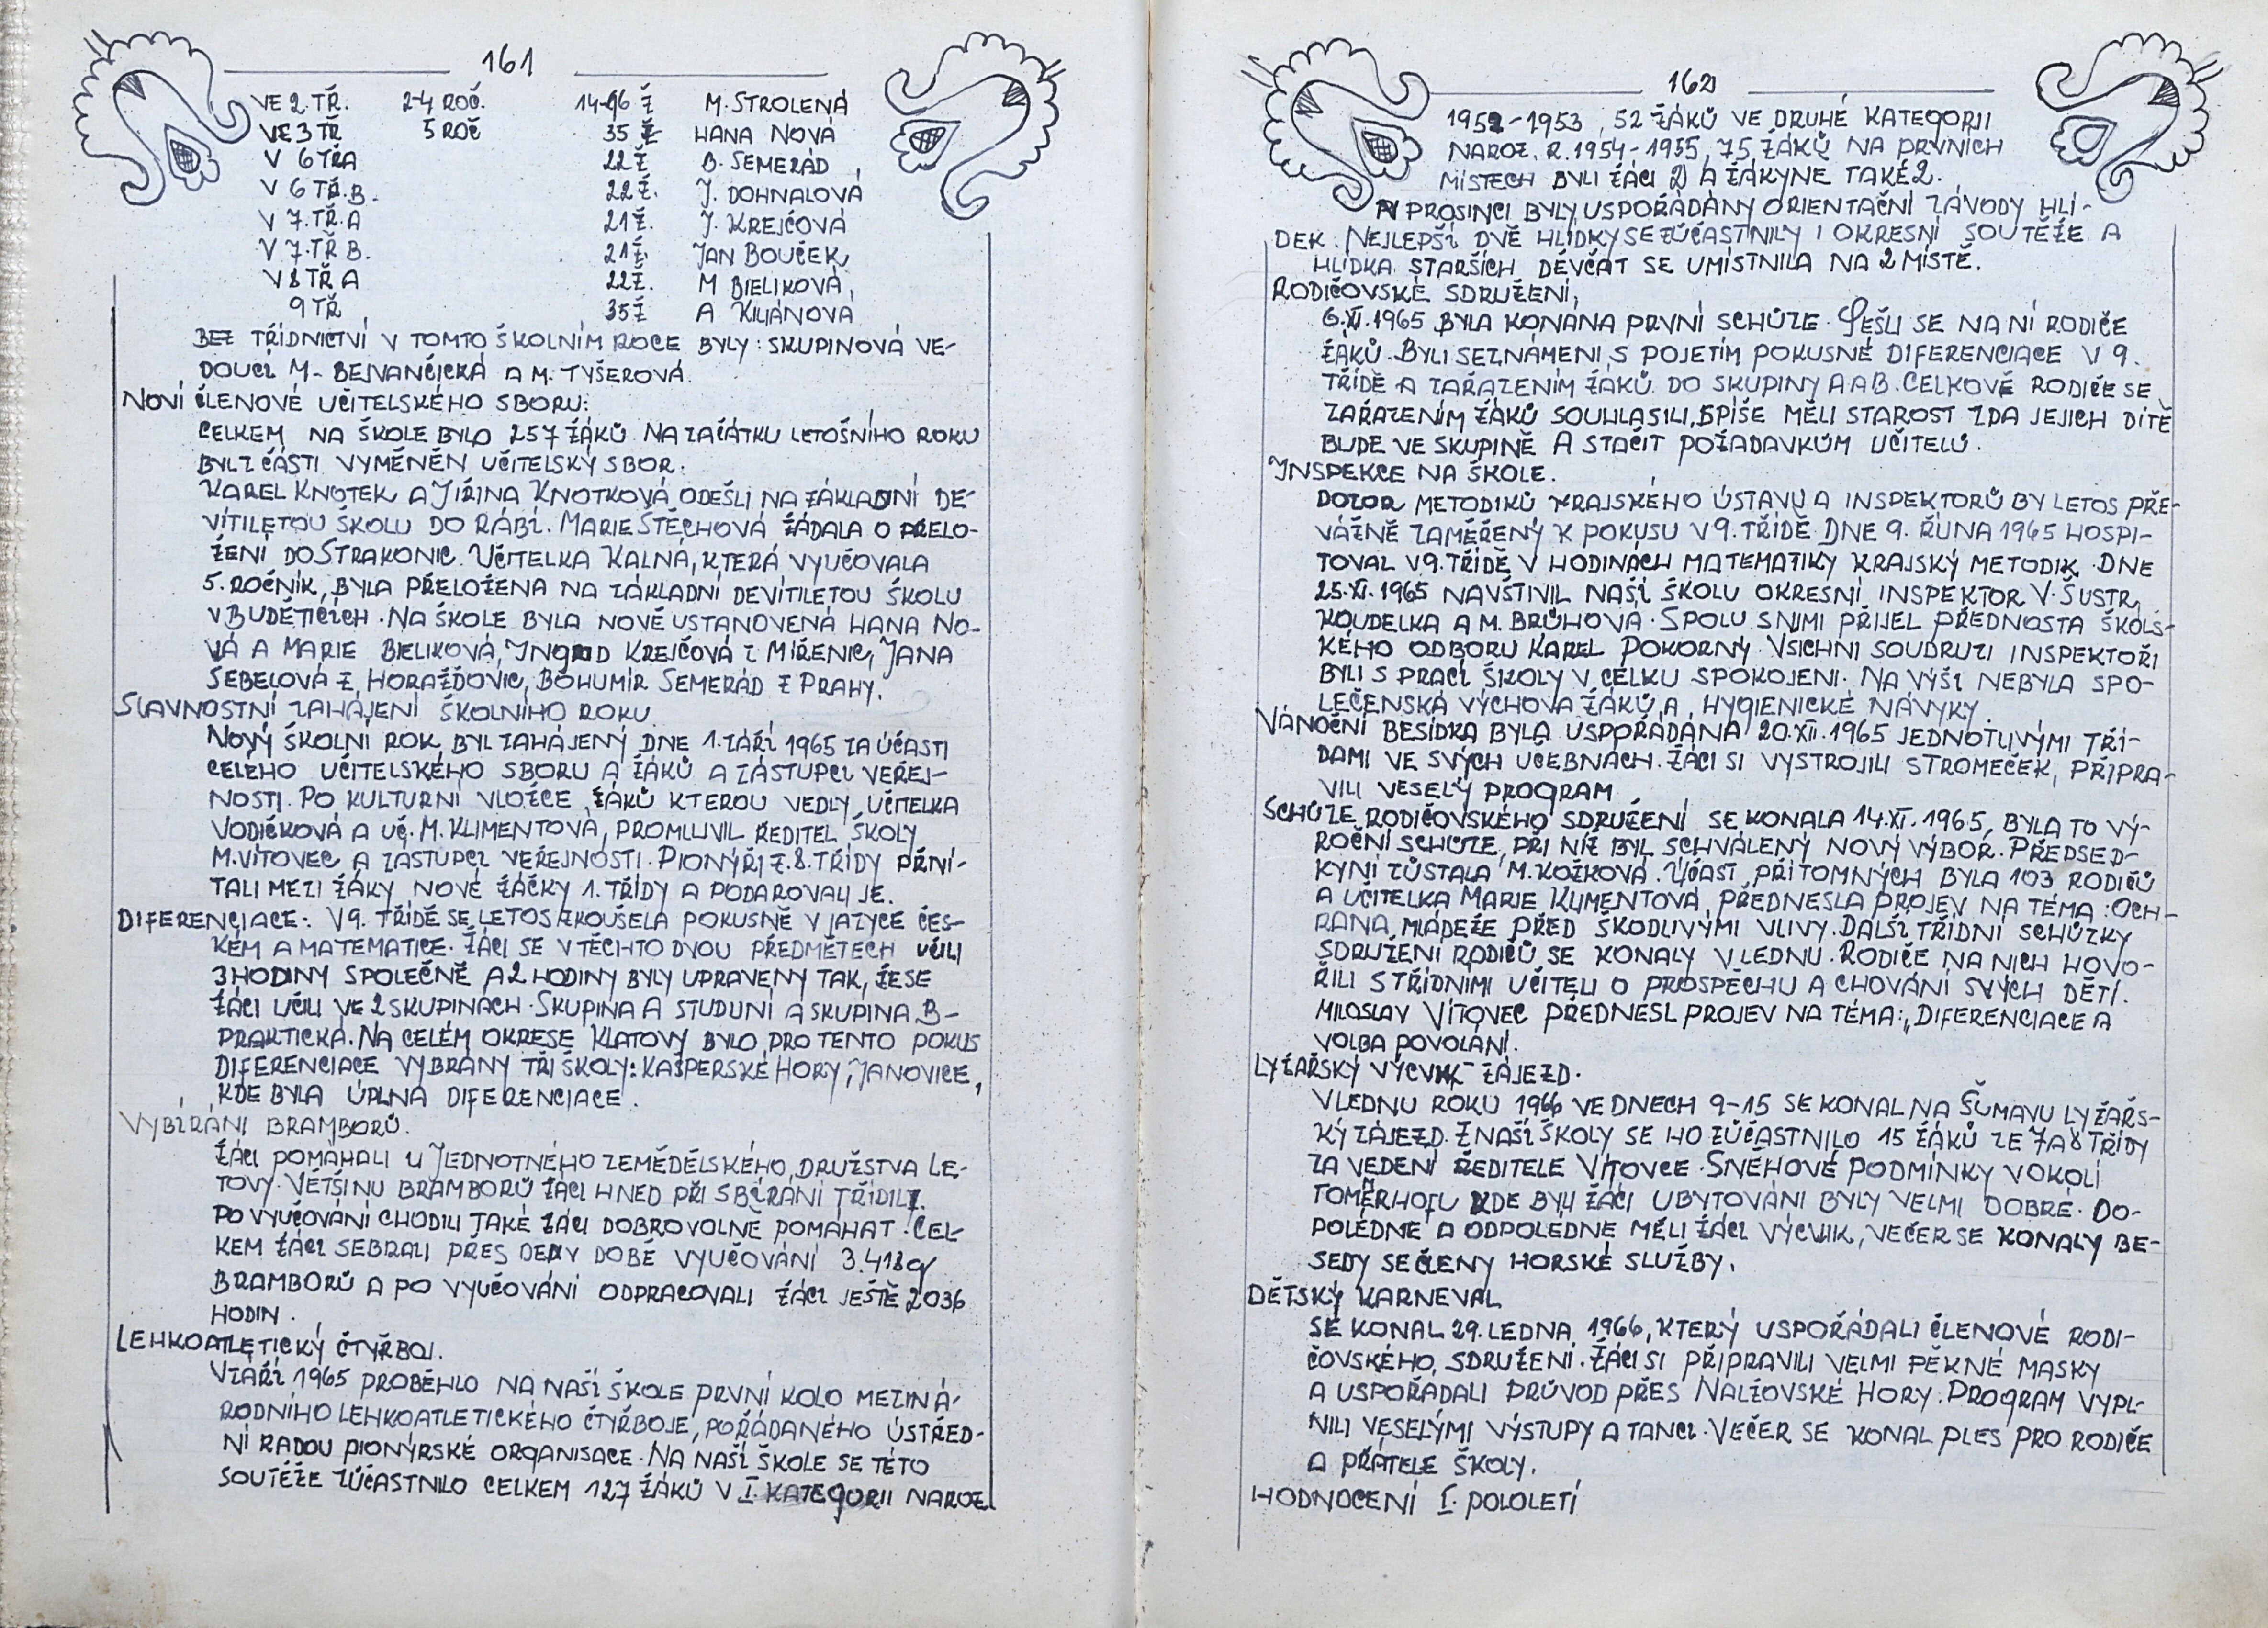 161
VE 2 TŘ. 2-4 ROČ. 14-96 Ž M. STROLENÁ
VE 3 TŘ 5 ROČ 35 Ž HANA NOVÁ
V 6 TŘA 22 Ž B. SEMERÁD
V 6 TŘ.B. 22 Ž. J. DOHNALOVÁ
V 7.TŘ.A 21 Ž. J. KREJČOVÁ
V 7.TŘ B. 21 Ž. JAN BOUČEK
V 8 TŘ A 22 Ž. M BIELIKOVÁ
9 TŘ 35 Ž A KILIÁNOVÁ
BEZ TŘÍDNICTVÍ V TOMTO ŠKOLNÍM ROCE BYLY: SKUPINOVÁ VE-
DOUCÍ M. BEJVANČICKÁ A M. TYŠEROVÁ.
NOVÍ ČLENOVÉ UČITELSKÉHO SBORU:
CELKEM NA ŠKOLE BYLO 257 ŽÁKŮ. NA ZAČÁTKU LETOŠNÍHO ROKU
BYL Z ČÁSTI VYMĚNĚN UČITELSKÝ SBOR.
KAREL KNOTEK A JIŘINA KNOTKOVÁ ODEŠLI NA ZÁKLADNÍ DE-
VÍTILETOU ŠKOLU DO RÁBÍ. MARIE ŠTĚCHOVÁ ŽÁDALA O PŘELO-
ŽENÍ DO STRAKONIC. UČITELKA KALNÁ, KTERÁ VYUČOVALA
5. ROČNÍK, BYLA PŘELOŽENA NA ZÁKLADNÍ DEVÍTILETOU ŠKOLU
V BUDĚTICÍCH. NA ŠKOLE BYLA NOVĚ USTANOVENÁ HANA NO-
VÁ A MARIE BIELIKOVÁ, INGRID KREJČOVÁ Z MÍŘENIC, JANA
ŠEBELOVÁ Z HORAŽĎOVIC, BOHUMÍR SEMERÁD Z PRAHY.
SLAVNOSTNÍ ZAHÁJENÍ ŠKOLNÍHO ROKU.
NOVÝ ŠKOLNÍ ROK BYL ZAHÁJENÝ DNE 1. ZÁŘÍ 1965 ZA ÚČASTI
CELÉHO UČITELSKÉHO SBORU A ŽÁKŮ A ZÁSTUPCŮ VEŘEJ-
NOSTI. PO KULTURNÍ VLOŽCE ŽÁKŮ KTEROU VEDLY UČITELKA
VODIČKOVÁ A UČ. M. KLIMENTOVÁ, PROMLUVIL ŘEDITEL ŠKOLY
M. VÍTOVEC A ZÁSTUPCI VEŘEJNOSTI. PIONÝŘI Z. 8. TŘÍDY PŘIVÍ-
TALI MEZI ŽÁKY NOVÉ ŽÁČKY 1. TŘÍDY A PODAROVALI JE.
DIFERENCIACE: V 9. TŘÍDĚ SE LETOS ZKOUŠELA POKUSNĚ V JAZYCE ČES-
KÉM A MATEMATICE. ŽÁCI SE V TĚCHTO DVOU PŘEDMĚTECH UČILI
3 HODINY SPOLEČNĚ A 2 HODINY BYLY UPRAVENY TAK, ŽE SE
ŽÁCI UČILI VE 2 SKUPINÁCH. SKUPINA A STUDIJNÍ A SKUPINA B-
PRAKTICKÁ. NA CELÉM OKRESE KLATOVY BYLO PRO TENTO POKUS
DIFERENCIACE VYBRÁNY TŘI ŠKOLY: KAŠPERSKÉ HORY, JANOVICE,
KDE BYLA ÚPLNÁ DIFERENCIACE.
VYBÍRÁNÍ BRAMBORŮ.
ŽÁCI POMÁHALI U JEDNOTNÉHO ZEMĚDĚLSKÉHO DRUŽSTVA LE-
TOVY. VĚTŠINU BRAMBORŮ ŽÁCI HNED PŘI SBÍRÁNÍ TŘÍDILI.
PO VYUČOVÁNÍ CHODILI TAKÉ ŽÁCI DOBROVOLNĚ POMÁHAT. CEL-
KEM ŽÁCI SEBRALI PŘES DENY DOBĚ VYUČOVÁNÍ 3.418 q
BRAMBORŮ A PO VYUČOVÁNÍ ODPRACOVALI ŽÁCI JEŠTĚ 2036
HODIN.
LEHKOATLETICKÝ ČTYŘBOJ.
V ZÁŘÍ 1965 PROBĚHLO NA NAŠÍ ŠKOLE PRVNÍ KOLO MEZINÁ-
RODNÍHO LEHKOATLETICKÉHO ČTYŘBOJE, POŘÁDANÉHO ÚSTŘED-
NÍ RADOU PIONÝRSKÉ ORGANISACE. NA NAŠÍ ŠKOLE SE TÉTO
SOUTĚŽE ZÚČASTNILO CELKEM 127 ŽÁKŮ V I. KATEGORII NAROZ.
162
1952-1953, 52 ŽÁKŮ VE DRUHÉ KATEGORII
NAROZ. R. 1954-1955, 75 ŽÁKŮ NA PRVNÍCH
MÍSTECH BYLI ŽÁCI 2 A ŽÁKYNE TAKÉ 2.
V PROSINCI BYLY USPOŘÁDÁNY ORIENTAČNÍ ZÁVODY HLÍ-
DEK. NEJLEPŠÍ DVĚ HLÍDKY SE ZÚČASTNILY I OKRESNÍ SOUTĚŽE A
HLÍDKA STARŠÍCH DĚVČAT SE UMÍSTNILA NA 2 MÍSTĚ.
RODIČOVSKÉ SDRUŽENÍ,
6.XI.1965 BYLA KONÁNA PRVNÍ SCHŮZE. SEŠLI SE NA NÍ RODIČE
ŽÁKŮ. BYLI SEZNÁMENI S POJETÍM POKUSNÉ DIFERENCIACE V 9.
TŘÍDĚ A ZAŘAZENÍM ŽÁKŮ DO SKUPINY A A B. CELKOVĚ RODIČE SE
ZAŘAZENÍM ŽÁKŮ SOUHLASILI, SPÍŠE MĚLI STAROST ZDA JEJICH DÍTĚ
BUDE VE SKUPINĚ A STAČIT POŽADAVKŮM UČITELŮ.
INSPEKCE NA ŠKOLE.
DOZOR METODIKŮ KRAJSKÉHO ÚSTAVU A INSPEKTORŮ BY LETOS PŘE-
VÁŽNĚ ZAMĚŘENÝ K POKUSU V 9. TŘÍDĚ. DNE 9. ŘIJNA 1965 HOSPI-
TOVAL V 9. TŘÍDĚ V HODINÁCH MATEMATIKY KRAJSKÝ METODIK. DNE
25.XI.1965 NAVŠTÍVIL NAŠÍ ŠKOLU OKRESNÍ INSPEKTOR V. ŠUSTR,
KOUDELKA A M. BRŮHOVÁ. SPOLU S NIMI PŘIJEL PŘEDNOSTA ŠKOLS-
KÉHO ODBORU KAREL POKORNÝ. VŠICHNI SOUDRUZI INSPEKTOŘI
BYLI S PRACÍ ŠKOLY V CELKU SPOKOJENI. NA VÝŠI NEBYLA SPO-
LEČENSKÁ VÝCHOVA ŽÁKŮ A HYGIENICKÉ NÁVYKY.
VÁNOČNÍ BESÍDKA BYLA USPOŘÁDÁNA 20.XII.1965 JEDNOTLIVÝMI TŘÍ-
DAMI VE SVÝCH UČEBNÁCH. ŽÁCI SI VYSTROJILI STROMEČEK, PŘIPRA-
VILI VESELÝ PROGRAM
SCHŮZE RODIČOVSKÉHO SDRUŽENÍ SE KONALA 14.XI.1965, BYLA TO VÝ-
ROČNÍ SCHŮZE, PŘI NÍŽ BYL SCHVÁLENÝ NOVÝ VÝBOR. PŘEDSED-
KYNÍ ZŮSTALA M. KOŽKOVÁ. ÚČAST PŘÍTOMNÝCH BYLA 103 RODIČŮ
A UČITELKA MARIE KLIMENTOVÁ, PŘEDNESLA PROJEV NA TÉMA: OCH-
RANA MLÁDEŽE PŘED ŠKODLIVÝMI VLIVY. DALŠÍ TŘÍDNÍ SCHŮZKY
SDRUŽENÍ RODIČŮ SE KONALY V LEDNU. RODIČE NA NICH HOVO-
ŘILI S TŘÍDNÍMI UČITELI O PROSPĚCHU A CHOVÁNÍ SVÝCH DĚTÍ.
MILOSLAV VÍTOVEC PŘEDNESL PROJEV NA TÉMA: „DIFERENCIACE A
VOLBA POVOLÁNÍ.
LYŽAŘSKÝ VÝCVIK - ZÁJEZD.
V LEDNU ROKU 1966 VE DNECH 9-15 SE KONAL NA ŠUMAVU LYŽAŘS-
KÝ ZÁJEZD. Z NAŠÍ ŠKOLY SE HO ZÚČASTNILO 15 ŽÁKŮ ZE 7 A 8 TŘÍDY
ZA VEDENÍ ŘEDITELE VÍTOVCE. SNĚHOVÉ PODMÍNKY V OKOLÍ
TOMERHOFU KDE BYLI ŽÁCI UBYTOVÁNI BYLY VELMI DOBRÉ. DO-
POLEDNE A ODPOLEDNE MĚLI ŽÁCI VÝCVIK, VEČER SE KONALY BE-
SEDY SE ČLENY HORSKÉ SLUŽBY.
DĚTSKÝ KARNEVAL
SE KONAL 29. LEDNA 1966, KTERÝ USPOŘÁDALI ČLENOVÉ RODI-
ČOVSKÉHO SDRUŽENÍ. ŽÁCI SI PŘIPRAVILI VELMI PĚKNÉ MASKY
A USPOŘÁDALI PRŮVOD PŘES NALŽOVSKÉ HORY. PROGRAM VYPL-
NILI VESELÝMI VÝSTUPY A TANCI. VEČER SE KONAL PLES PRO RODIČE
A PŘÁTELE ŠKOLY.
HODNOCENÍ I. POLOLETÍ